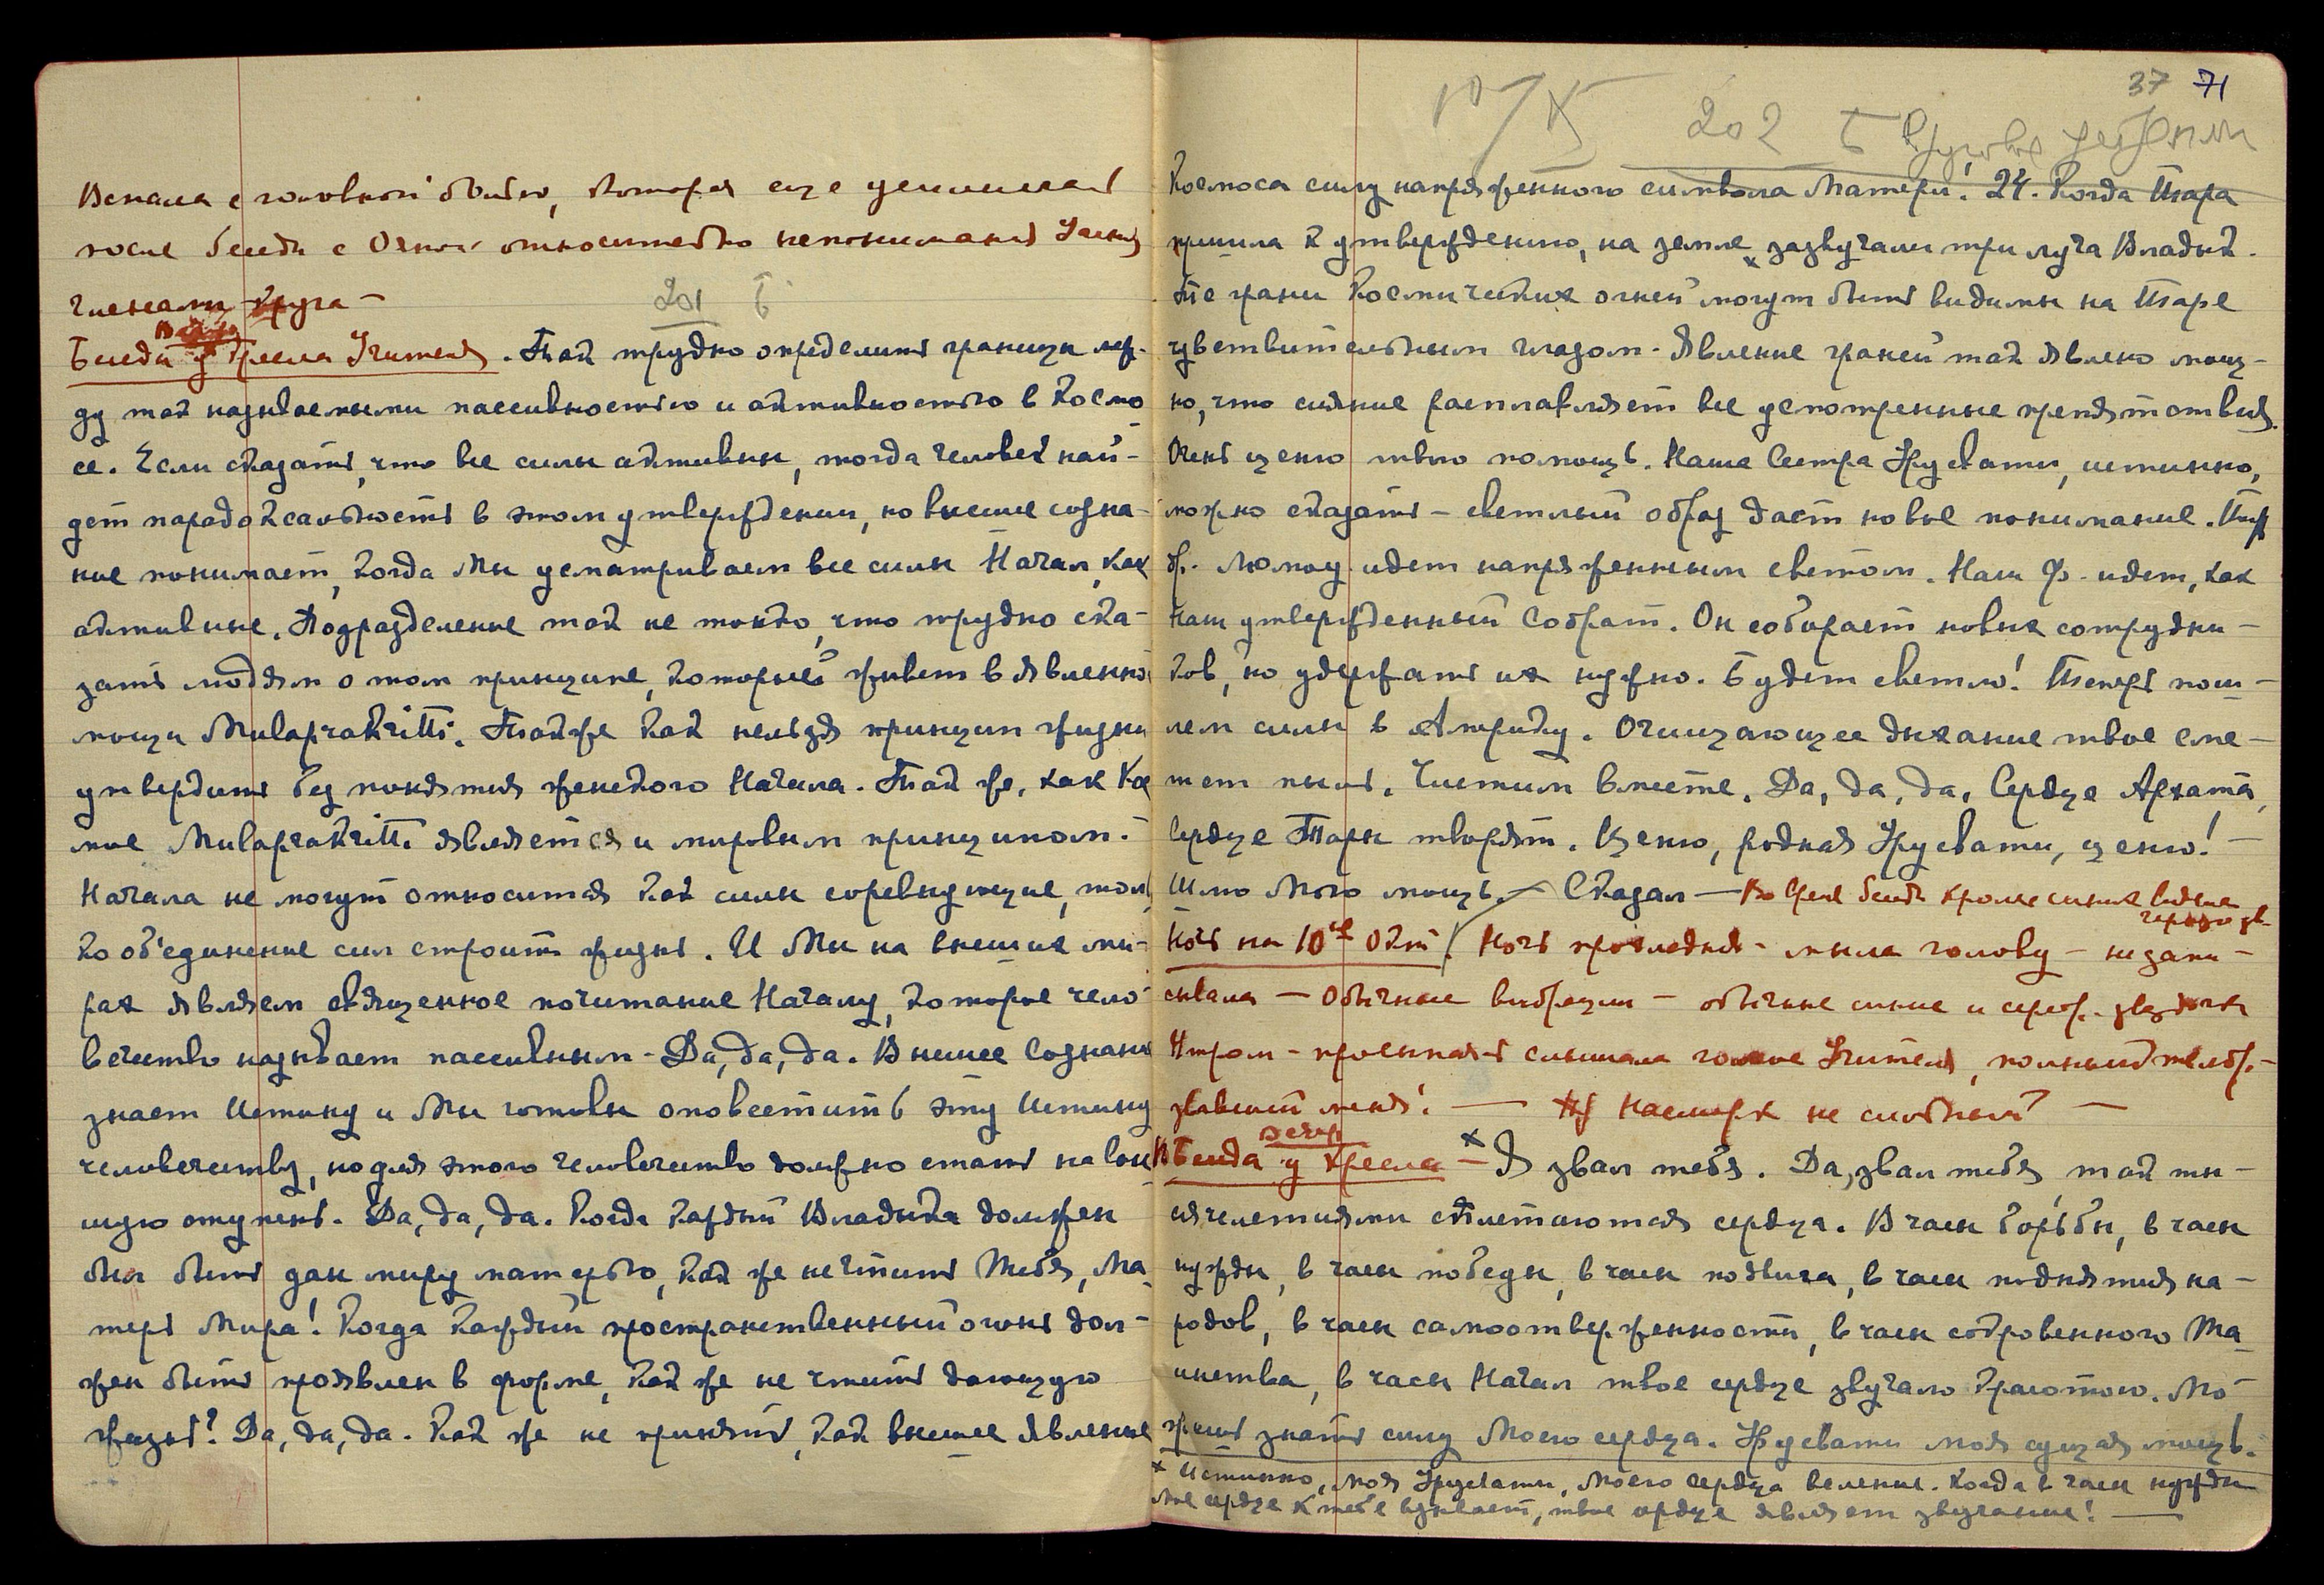 Встала с головной болью, которая еще усиливает
после беседы с Ояной относительно непонимания Учения
членами круга —
201 Б
Беседа у Кресла Учителя. Так трудно определить границы меж-
ду так называемыми пассивностью и активностью в Космо-
се. Если сказать, что все силы активны, тогда человек най-
дет парадоксальность в этом утверждении, но высшее созна-
ние понимает, когда Мы усматриваем все силы Начал, как
активные. Подразделение так не тонко, что трудно ска-
зать людям о том принципе, который живет в явленной
мощи Mulaprakritti. Также как нельзя принцип жизни
утвердить без понятия женского Начала. Так же, как Кос
мос Mulaprakritti является и мировым принципом.
Начала не могут относиться как силы соревнующие, толь
ко об'единение сил строит жизнь. И Мы на высших ми-
рах являем священное почитание Началу, которое чело-
вечество называет пассивным - Да, да, да. Высшее Сознание
знает Истину и Мы готовы оповестить эту Истину
человечеству, но для этого человечество должно стать на выс
шую ступень. Да, да, да. Когда каждый Владыка должен
был быть дан миру матерью, как же не чтить Тебя, Ма-
терь Мира! Когда каждый пространственный огонь дол-
жен быть проявлен в форме, как же не чтить дающую
жизнь? Да, да, да. Как же не принять, как высшее явление
37 71
202 Б
Космоса силу напряженного символа Матери! 24. Когда Тара
пришла к утверждению, на земле зазвучали три луча Владык.
Те грани Космических огней могут быть видимы на Таре
чувствительным глазом. Явление граней так явлено мощ-
но, что сияние расплавляет все усмотренные препятствия.
Очень ценю твою помощь. Наша Сестра Урусвати, истинно,
можно сказать - светлый образ дает новое понимание.
идет напряженным светом. Наш Ф. идет, как
Наш утвержденный Собрат. Он собирает новых сотрудни-
ков, но удержать их нужно. Будет светло! Теперь пош-
лем силы в Америку. Очищающее дыхание твое сме-
тет пыль. Чистим вместе. Да, да, да. Сердце Архата,
Сердце Тары творят. Ценю, родная Урусвати, ценю! —
Шлю Мою мощь. — Сказал — Во время беседы кроме синих видела
Ночь на 10ое Окт. Ночь последняя - мыла голову - не запи-
сывала — Обычные вибрации - обычные синие и сереб. звездочки
Утром - просыпаясь слышала голос Учителя, полный тембр.-
звавший меня! — Насморк не сильный —
вечер
Беседа у кресла — × Я звал тебя. Да, звал тебя так ты-
сячелетиями сплетаются сердца. В часы борьбы, в часы
нужды, в часы победы, в часы подвига, в часы поднятия на-
родов, в часы самоотверженности, в часы сокровенного Та-
инства, в часы Начал твое сердце звучало красотою. Мо-
жешь знать силу Моего сердца. Урусвати моя сущая мощь.
× Истинно, моя Урусвати, Моего сердца веление. Когда в часы нужды
Мое сердце к тебе взывает, твое сердце являет звучание! —